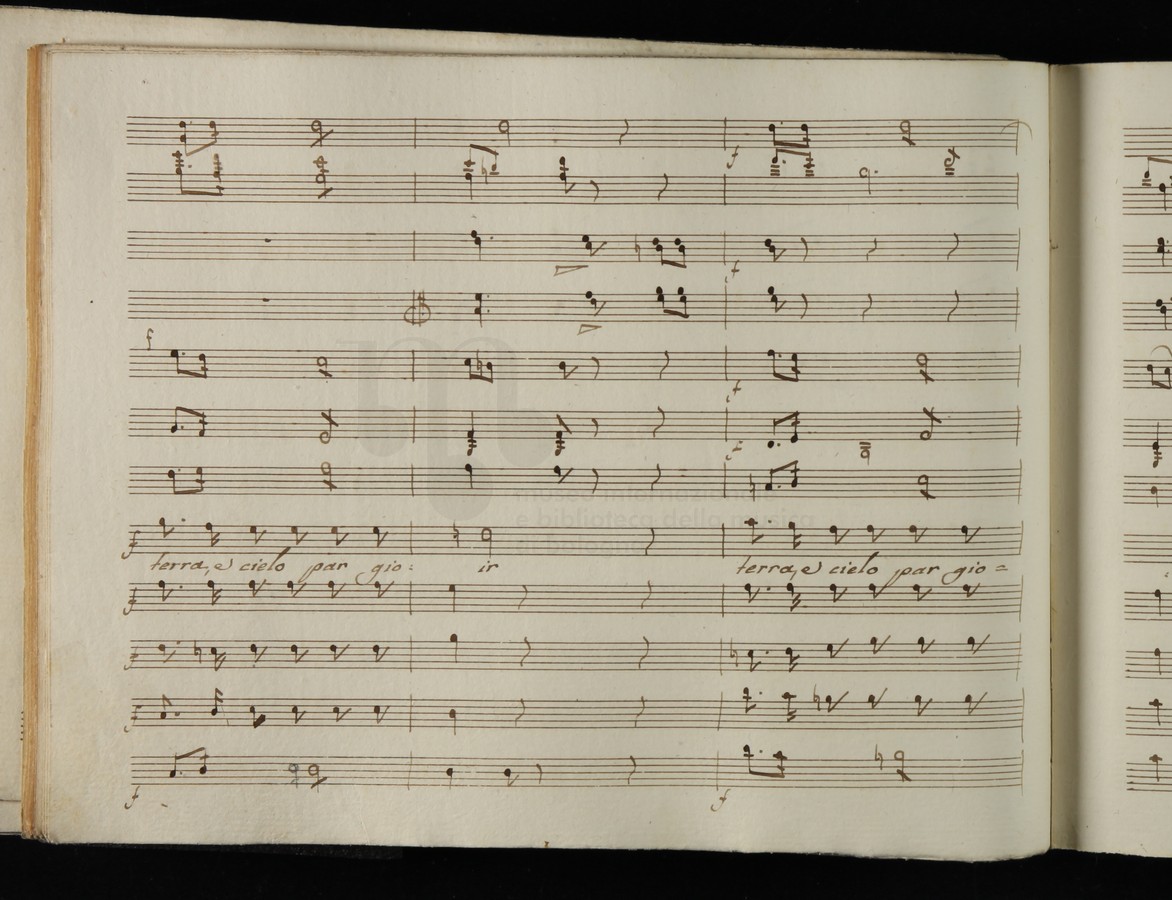 f
f
f
f
f
museo internazionale
e biblioteca della musica
di bologna
f
terra, e cielo par gio: ir terra, e cielo par gio =
f
f
f
f f